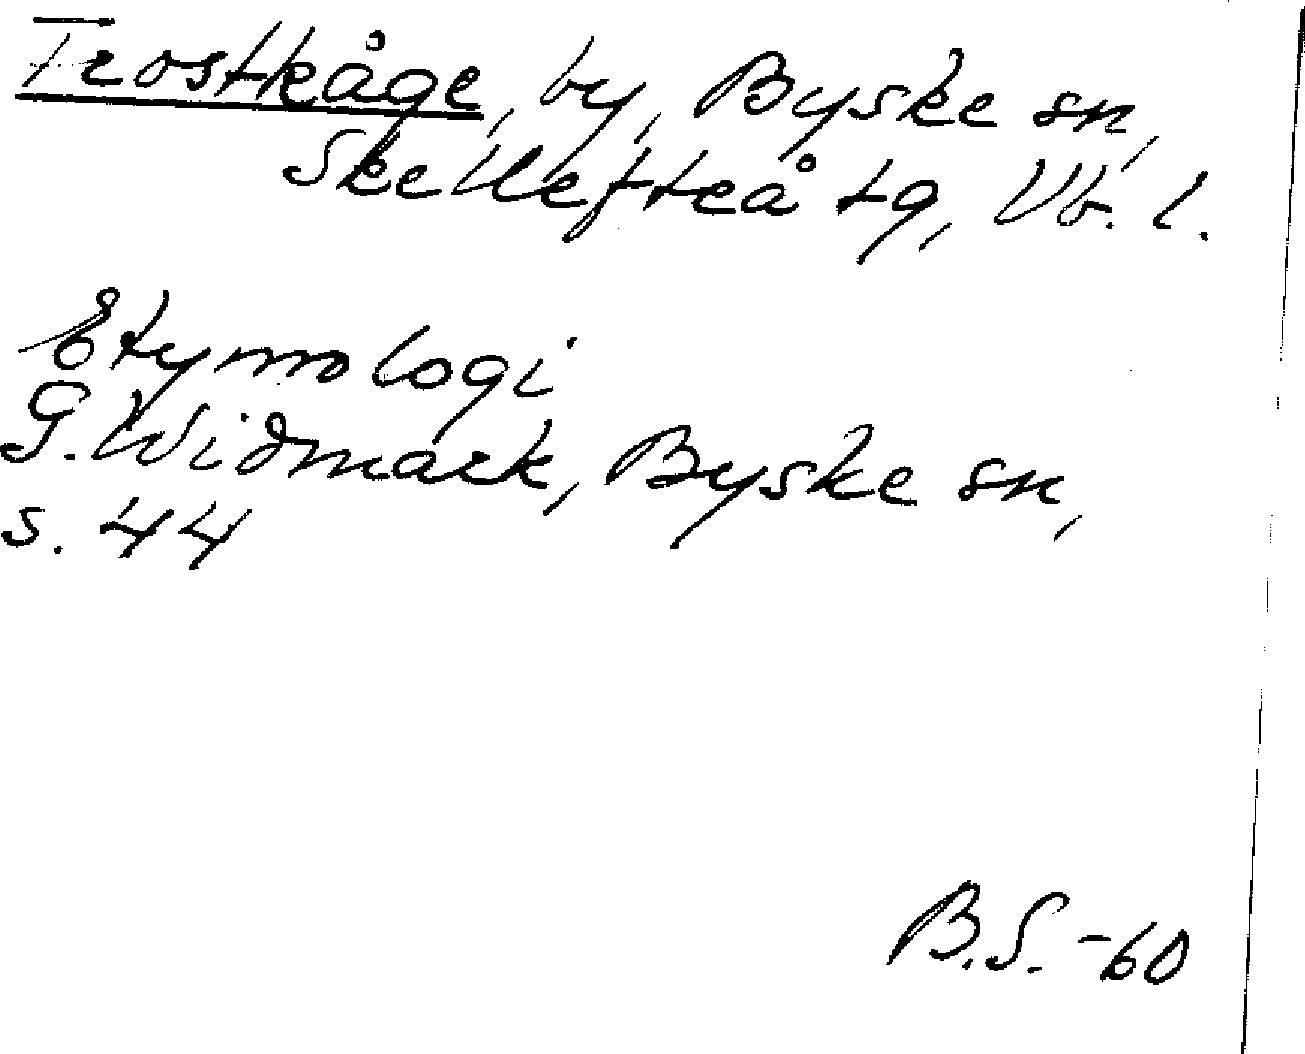 Frostkåge, by, Byske sn,
Skellefteå tg, Vb. l.
Etymologi
G. Widmark, Byske sn,
s. 44
B.S. -60